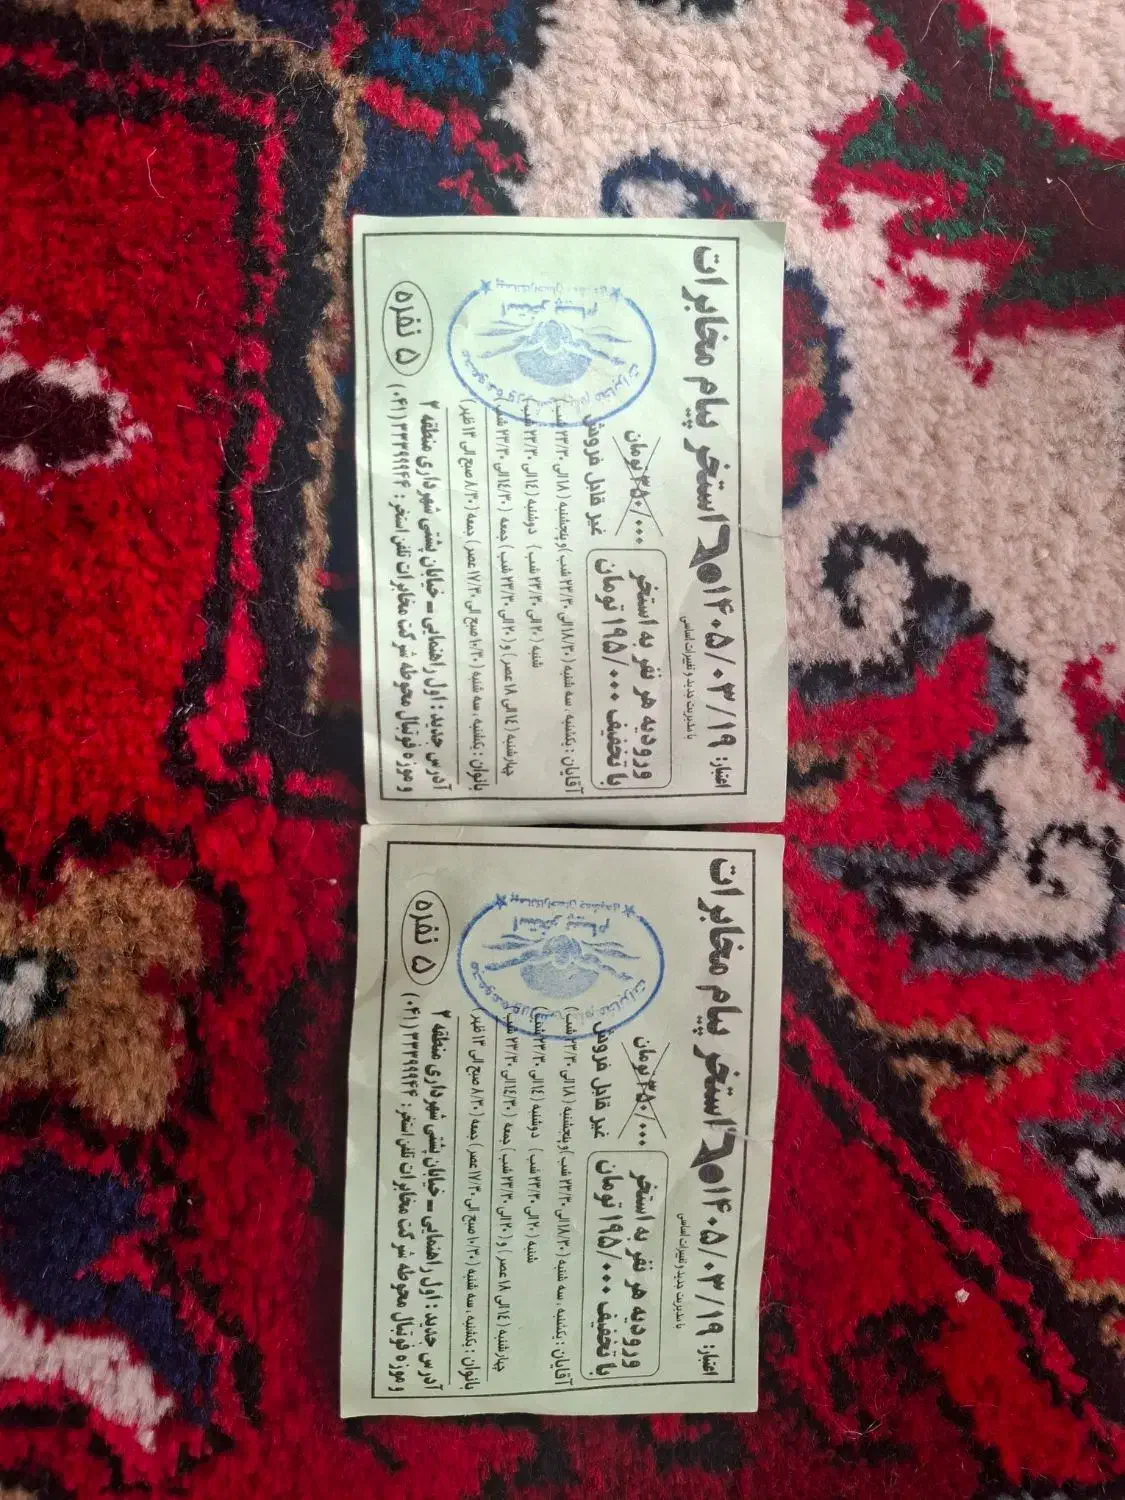 استخر پیام مخابرات
اعتبار: ۱۴۰۵/۰۳/۱۹
با مدیریت جدید و تغییرات اساسی
ورودیه هر نفر به استخر
با تخفیف ۱۹۵/۰۰۰ تومان
۳۵۰/۰۰۰ تومان
غیر قابل فروش
آقایان : یکشنبه ، سه شنبه (۱۸/۳۰ الی ۲۳/۳۰ شب) و پنجشنبه (۱۸ الی ۲۳/۳۰ شب)
شنبه (۲۰ الی ۲۳/۳۰ شب) دوشنبه (۱۴ الی ۲۳/۳۰ شب)
چهارشنبه (۱۴ الی ۱۸ عصر) و (۲۰ الی ۲۳/۳۰ شب) جمعه (۱۴/۳۰ الی ۲۳/۳۰ شب)
بانوان : یکشنبه ، سه شنبه (۱۰/۳۰ صبح الی ۱۷/۳۰ عصر) جمعه (۸/۳۰ صبح الی ۱۳ ظهر)
آدرس جدید : اول راهنمایی - خیابان پشتی شهرداری منطقه ۲
و موزه فوتبال محوطه شرکت مخابرات تلفن استخر : ۳۳۳۹۹۹۴۴ (۰۴۱)
۵ نفره
استخر پیام
استخر پیام مخابرات
اعتبار: ۱۴۰۵/۰۳/۱۹
با مدیریت جدید و تغییرات اساسی
ورودیه هر نفر به استخر
با تخفیف ۱۹۵/۰۰۰ تومان
۳۵۰/۰۰۰ تومان
غیر قابل فروش
آقایان : یکشنبه ، سه شنبه (۱۸/۳۰ الی ۲۳/۳۰ شب) و پنجشنبه (۱۸ الی ۲۳/۳۰ شب)
شنبه (۲۰ الی ۲۳/۳۰ شب) دوشنبه (۱۴ الی ۲۳/۳۰ شب)
چهارشنبه (۱۴ الی ۱۸ عصر) و (۲۰ الی ۲۳/۳۰ شب) جمعه (۱۴/۳۰ الی ۲۳/۳۰ شب)
بانوان : یکشنبه ، سه شنبه (۱۰/۳۰ صبح الی ۱۷/۳۰ عصر) جمعه (۸/۳۰ صبح الی ۱۳ ظهر)
آدرس جدید : اول راهنمایی - خیابان پشتی شهرداری منطقه ۲
و موزه فوتبال محوطه شرکت مخابرات تلفن استخر : ۳۳۳۹۹۹۴۴ (۰۴۱)
۵ نفره
استخر پیام